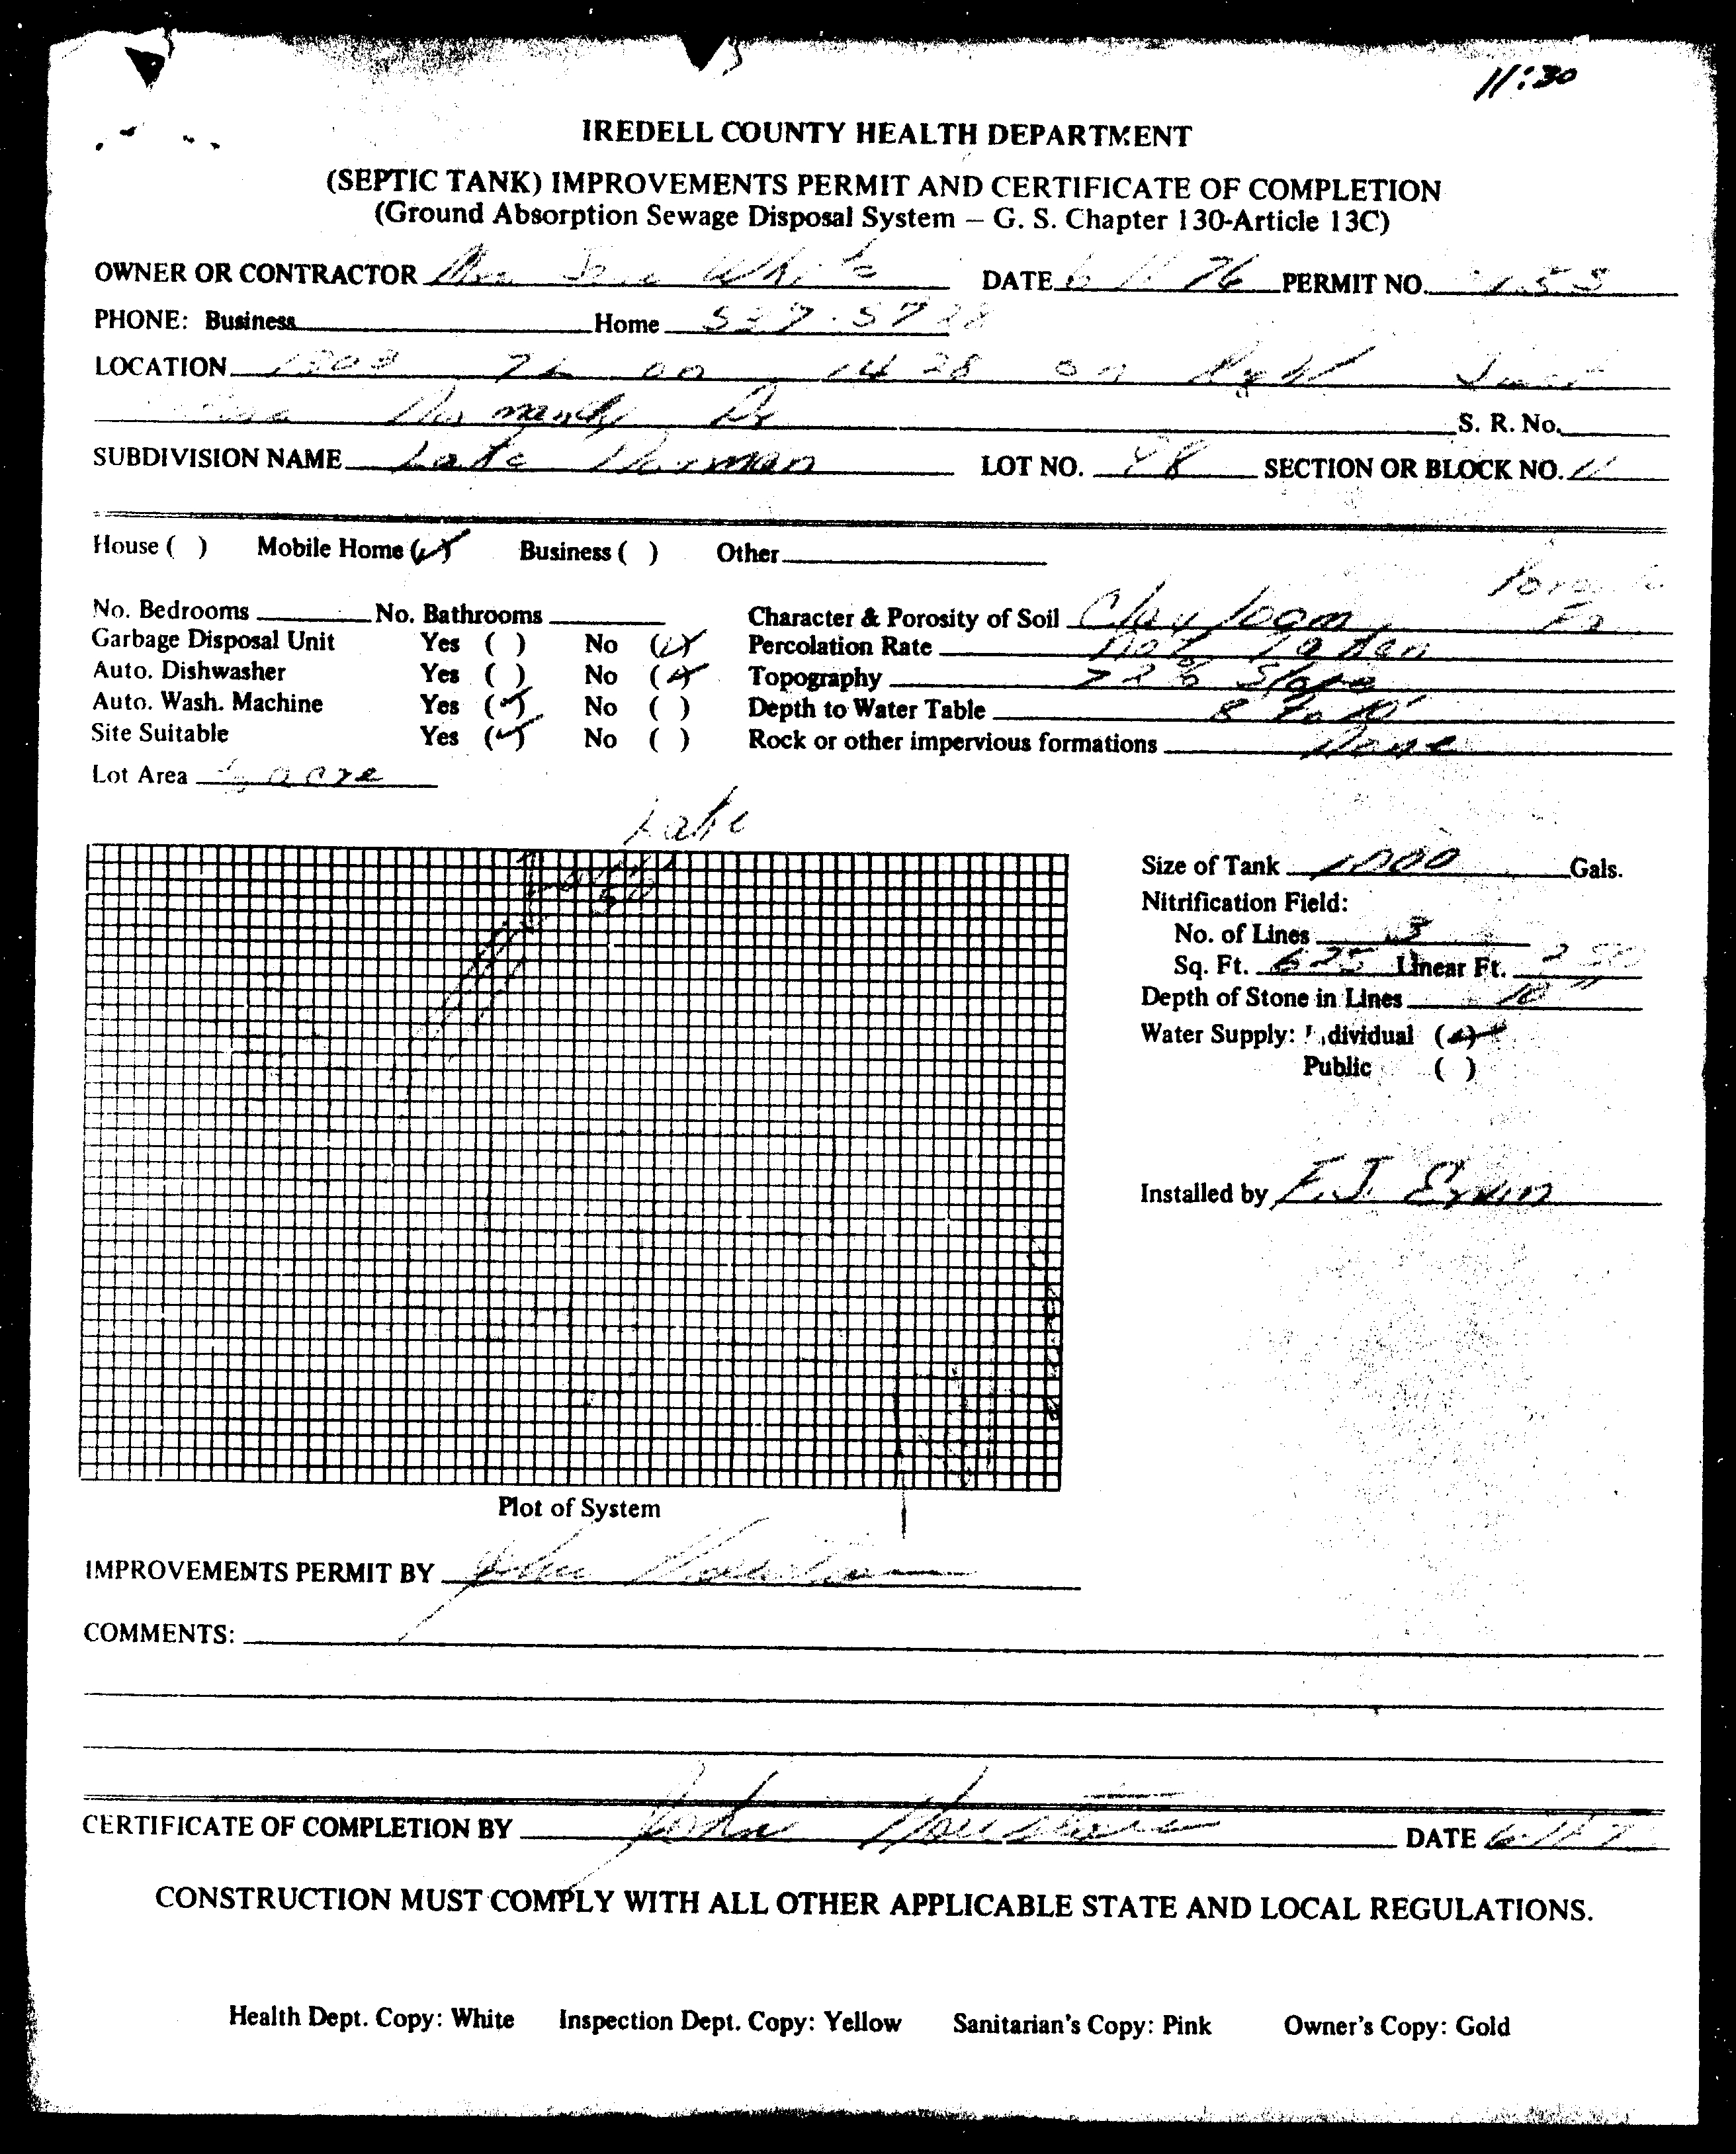 11:30
IREDELL COUNTY HEALTH DEPARTMENT
(SEPTIC TANK) IMPROVEMENTS PERMIT AND CERTIFICATE OF COMPLETION
(Ground Absorption Sewage Disposal System – G. S. Chapter 130-Article 13C)
OWNER OR CONTRACTOR White DATE 6 11 76 PERMIT NO.
PHONE: Business Home 527-5728
LOCATION on 1428 on Right
Normandy Dr S. R. No.
SUBDIVISION NAME Lake Norman LOT NO. SECTION OR BLOCK NO. 11
House ( ) Mobile Home (✓) Business ( ) Other
No. Bedrooms No. Bathrooms Character & Porosity of Soil Clay loam,
Garbage Disposal Unit Yes ( ) No (✓) Percolation Rate Not Taken
Auto. Dishwasher Yes ( ) No (✓) Topography Slope
Auto. Wash. Machine Yes (✓) No ( ) Depth to Water Table 8 to 10'
Site Suitable Yes (✓) No ( ) Rock or other impervious formations None
Lot Area acre
Lake
Size of Tank 1000 Gals.
Nitrification Field:
No. of Lines 3
Sq. Ft. 625 Linear Ft. 250
Depth of Stone in Lines 10"
Water Supply: Individual (✓)
Public ( )
Installed by F.J. Ervin
Plot of System
IMPROVEMENTS PERMIT BY John
COMMENTS:
CERTIFICATE OF COMPLETION BY John Houston DATE
CONSTRUCTION MUST COMPLY WITH ALL OTHER APPLICABLE STATE AND LOCAL REGULATIONS.
Health Dept. Copy: White Inspection Dept. Copy: Yellow Sanitarian's Copy: Pink Owner's Copy: Gold